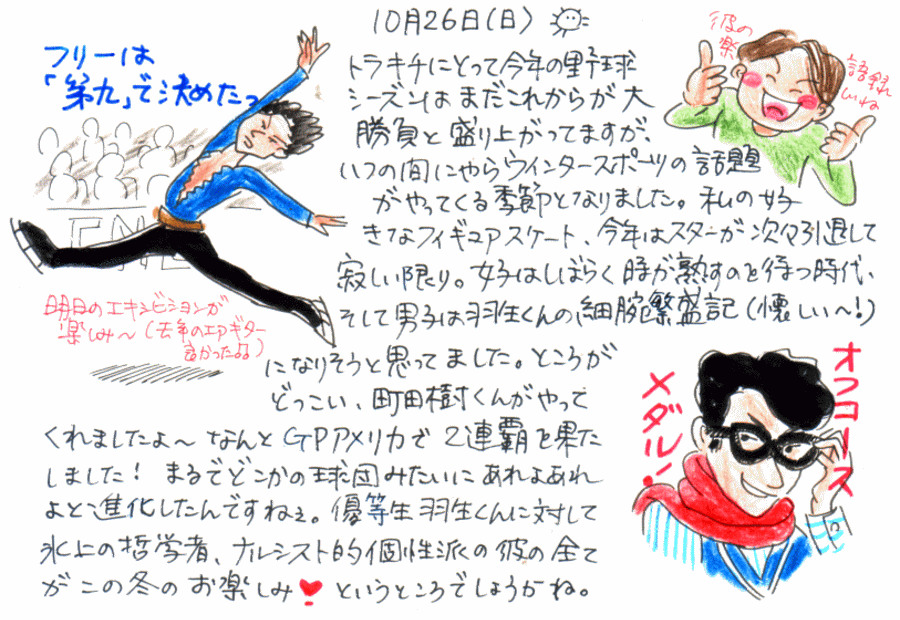 10月26日(日)
フリーは
「第九」で決めたっ
彼の楽
語録
いいね
トラキチにとって今年の野球
シーズンはまだこれからが大
勝負と盛り上がってますが、
いつの間にやらウインタースポーツの話題
がやってくる季節となりました。私の好
きなフィギュアスケート、今年はスターが次々引退して
寂しい限り。女子はしばらく時が熟すのを待つ時代、
そして男子は羽生くんの細腕繁盛記(懐しい〜!)
明日のエキシビションが
楽しみ〜(去年のエアギター
良かった)
になりそうと思ってました。ところが
どっこい、町田樹くんがやって
くれましたよ〜なんとGPアメリカで2連覇を果た
しました! まるでどこかの球団みたいにあれよあれ
よと進化したんですねぇ。優等生羽生くんに対して
氷上の哲学者、ナルシスト的個性派の彼の全て
がこの冬のお楽しみ♥というところでしょうかね。
オフコース
メダル!